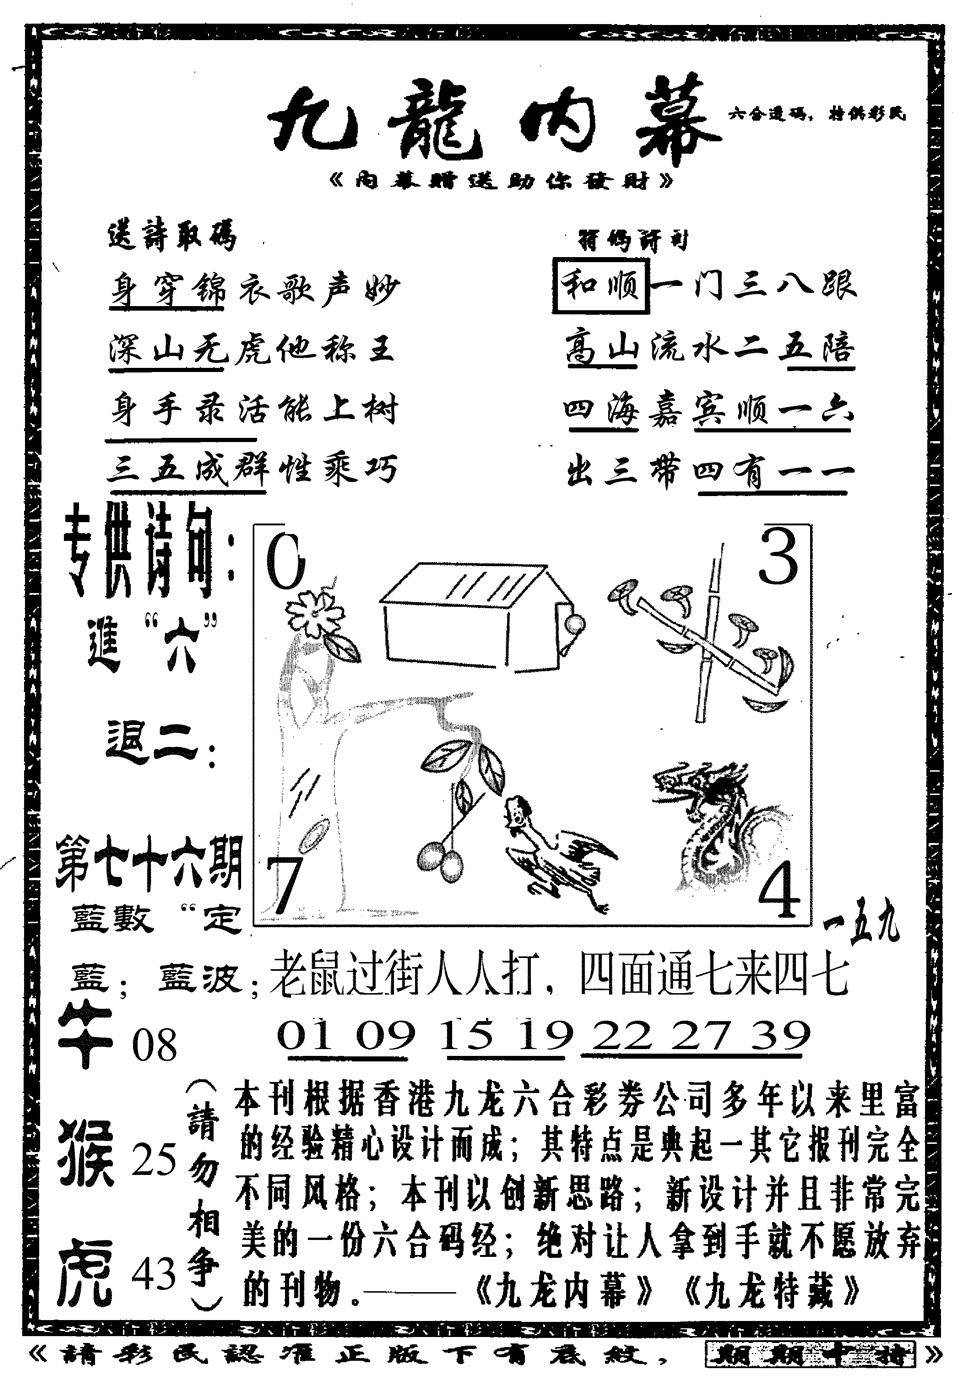 九龍内幕
六合透码，特供彩民
《内幕赠送助你發財》
送詩取碼
身穿锦衣歌声妙
深山无虎他称王
身手录活能上树
三五成群性乘巧
特码诗刊
和顺一门三八跟
高山流水二五陪
四海嘉宾顺一六
出三带四有一一
专供诗句：
進“六”
退二：
第七十六期
藍數“定
藍；藍波；
牛 08
猴 25
虎 43
（請勿相争）
0
3
7
4
一五九
老鼠过街人人打，四面通七来四七
01 09 15 19 22 27 39
本刊根据香港九龙六合彩券公司多年以来里富
的经验精心设计而成；其特点是典起一其它报刊完全
不同风格；本刊以创新思路；新设计并且非常完
美的一份六合码经；绝对让人拿到手就不愿放弃
的刊物.——《九龙内幕》《九龙特藏》
《請彩民認准正版下有底紋，期期中特》